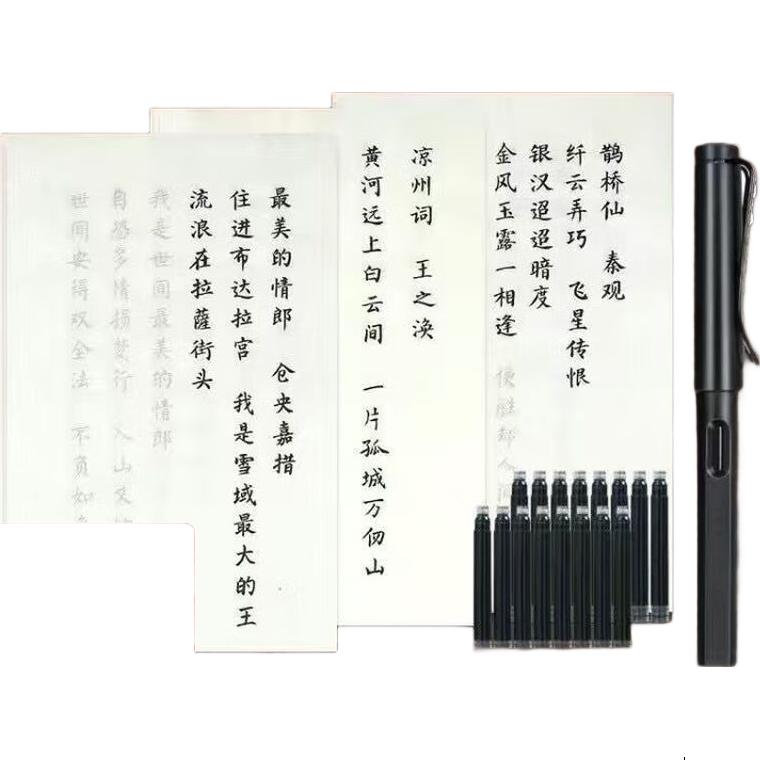 鹊桥仙 秦观
纤云弄巧 飞星传恨
银汉迢迢暗度
金风玉露一相逢 便胜却人间
凉州词 王之涣
黄河远上白云间 一片孤城万仞山
最美的情郎 仓央嘉措
住进布达拉宫 我是雪域最大的王
流浪在拉薩街头
我是世间最美的情郎
自恐多情损梵行 入山又
世间安得双全法 不负如